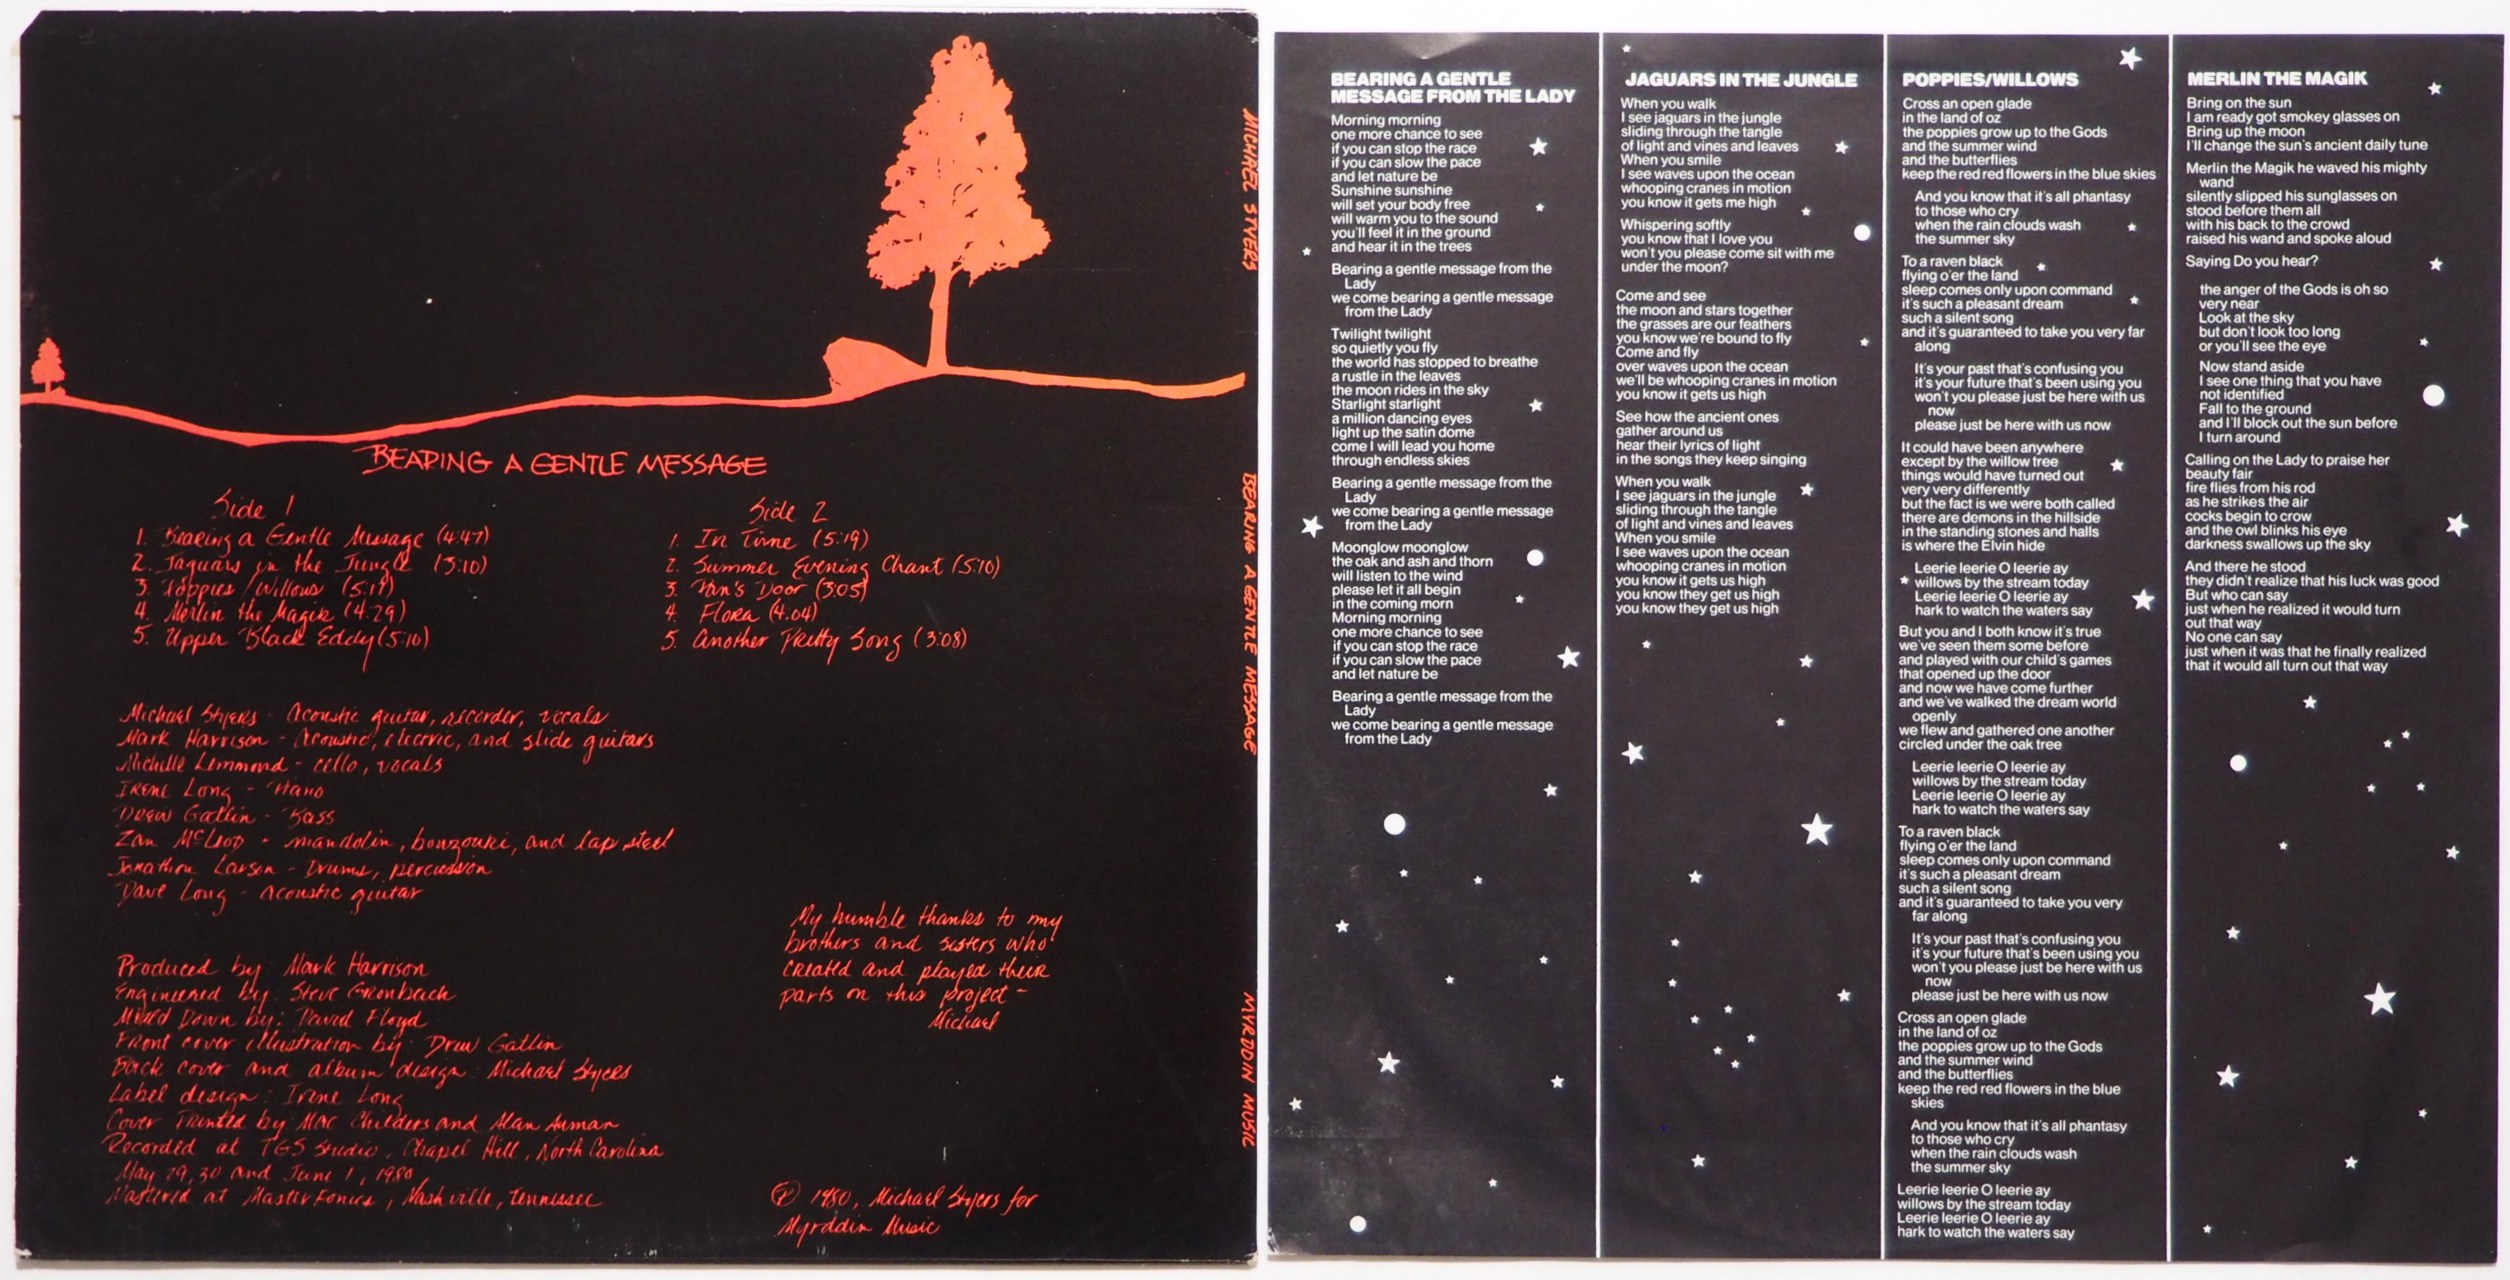 BEARING A GENTLE MESSAGE
Side 1
1. Bearing a Gentle Message (4:47)
2. Jaguars in the Jungle (3:10)
3. Poppies/Willows (5:17)
4. Merlin the Magik (4:29)
5. Upper Black Eddy (5:10)
Side 2
1. In Time (5:19)
2. Summer Evening Chant (5:10)
3. Pan's Door (3:05)
4. Flora (4:04)
5. Another Pretty Song (3:08)
Michael Styers - Acoustic guitar, recorder, vocals
Mark Harrison - Acoustic, electric, and slide guitars
Michelle Lemmond - cello, vocals
Irene Long - Piano
Drew Gatlin - Bass
Zan McLeod - mandolin, bouzouki, and lap steel
Jonathon Larson - Drums, percussion
Dave Long - Acoustic guitar
Produced by: Mark Harrison
Engineered by: Steve Gronback
Mixed Down by: David Floyd
Front cover illustration by: Drew Gatlin
Back cover and album design: Michael Styers
Label design: Irene Long
Cover Printed by Mac Childers and Alan Auman
Recorded at TGS Studio, Chapel Hill, North Carolina
May 29, 30 and June 1, 1980
Mastered at Masterfonics, Nashville, Tennessee
My humble thanks to my
brothers and sisters who
created and played their
parts on this project -
Michael
Ⓟ 1980, Michael Styers for
Myrddin Music
MICHAEL STYERS BEARING A GENTLE MESSAGE MYRDDIN MUSIC
BEARING A GENTLE
MESSAGE FROM THE LADY
Morning morning
one more chance to see
if you can stop the race
if you can slow the pace
and let nature be
Sunshine sunshine
will set your body free
will warm you to the sound
you'll feel it in the ground
and hear it in the trees
Bearing a gentle message from the
Lady
we come bearing a gentle message
from the Lady
Twilight twilight
so quietly you fly
the world has stopped to breathe
a rustle in the leaves
the moon rides in the sky
Starlight starlight
a million dancing eyes
light up the satin dome
come I will lead you home
through endless skies
Bearing a gentle message from the
Lady
we come bearing a gentle message
from the Lady
Moonglow moonglow
the oak and ash and thorn
will listen to the wind
please let it all begin
in the coming morn
Morning morning
one more chance to see
if you can stop the race
if you can slow the pace
and let nature be
Bearing a gentle message from the
Lady
we come bearing a gentle message
from the Lady
JAGUARS IN THE JUNGLE
When you walk
I see jaguars in the jungle
sliding through the tangle
of light and vines and leaves
When you smile
I see waves upon the ocean
whooping cranes in motion
you know it gets me high
Whispering softly
you know that I love you
won't you please come sit with me
under the moon?
Come and see
the moon and stars together
the grasses are our feathers
you know we're bound to fly
Come and fly
over waves upon the ocean
we'll be whooping cranes in motion
you know it gets us high
See how the ancient ones
gather around us
hear their lyrics of light
in the songs they keep singing
When you walk
I see jaguars in the jungle
sliding through the tangle
of light and vines and leaves
When you smile
I see waves upon the ocean
whooping cranes in motion
you know it gets us high
you know they get us high
you know they get us high
POPPIES/WILLOWS
Cross an open glade
in the land of oz
the poppies grow up to the Gods
and the summer wind
and the butterflies
keep the red red flowers in the blue skies
And you know that it's all phantasy
to those who cry
when the rain clouds wash
the summer sky
To a raven black
flying o'er the land
sleep comes only upon command
it's such a pleasant dream
such a silent song
and it's guaranteed to take you very far
along
It's your past that's confusing you
it's your future that's been using you
won't you please just be here with us
now
please just be here with us now
It could have been anywhere
except by the willow tree
things would have turned out
very very differently
but the fact is we were both called
there are demons in the hillside
in the standing stones and halls
is where the Elvin hide
Leerie leerie O leerie ay
willows by the stream today
Leerie leerie O leerie ay
hark to watch the waters say
But you and I both know it's true
we've seen them some before
and played with our child's games
that opened up the door
and now we have come further
and we've walked the dream world
openly
we flew and gathered one another
circled under the oak tree
Leerie leerie O leerie ay
willows by the stream today
Leerie leerie O leerie ay
hark to watch the waters say
To a raven black
flying o'er the land
sleep comes only upon command
it's such a pleasant dream
such a silent song
and it's guaranteed to take you very
far along
It's your past that's confusing you
it's your future that's been using you
won't you please just be here with us
now
please just be here with us now
Cross an open glade
in the land of oz
the poppies grow up to the Gods
and the summer wind
and the butterflies
keep the red red flowers in the blue
skies
And you know that it's all phantasy
to those who cry
when the rain clouds wash
the summer sky
Leerie leerie O leerie ay
willows by the stream today
Leerie leerie O leerie ay
hark to watch the waters say
MERLIN THE MAGIK
Bring on the sun
I am ready got smokey glasses on
Bring up the moon
I'll change the sun's ancient daily tune
Merlin the Magik he waved his mighty
wand
silently slipped his sunglasses on
stood before them all
with his back to the crowd
raised his wand and spoke aloud
Saying Do you hear?
the anger of the Gods is oh so
very near
Look at the sky
but don't look too long
or you'll see the eye
Now stand aside
I see one thing that you have
not identified
Fall to the ground
and I'll block out the sun before
I turn around
Calling on the Lady to praise her
beauty fair
fire flies from his rod
as he strikes the air
cocks begin to crow
and the owl blinks his eye
darkness swallows up the sky
And there he stood
they didn't realize that his luck was good
But who can say
just when he realized it would turn
out that way
No one can say
just when it was that he finally realized
that it would all turn out that way